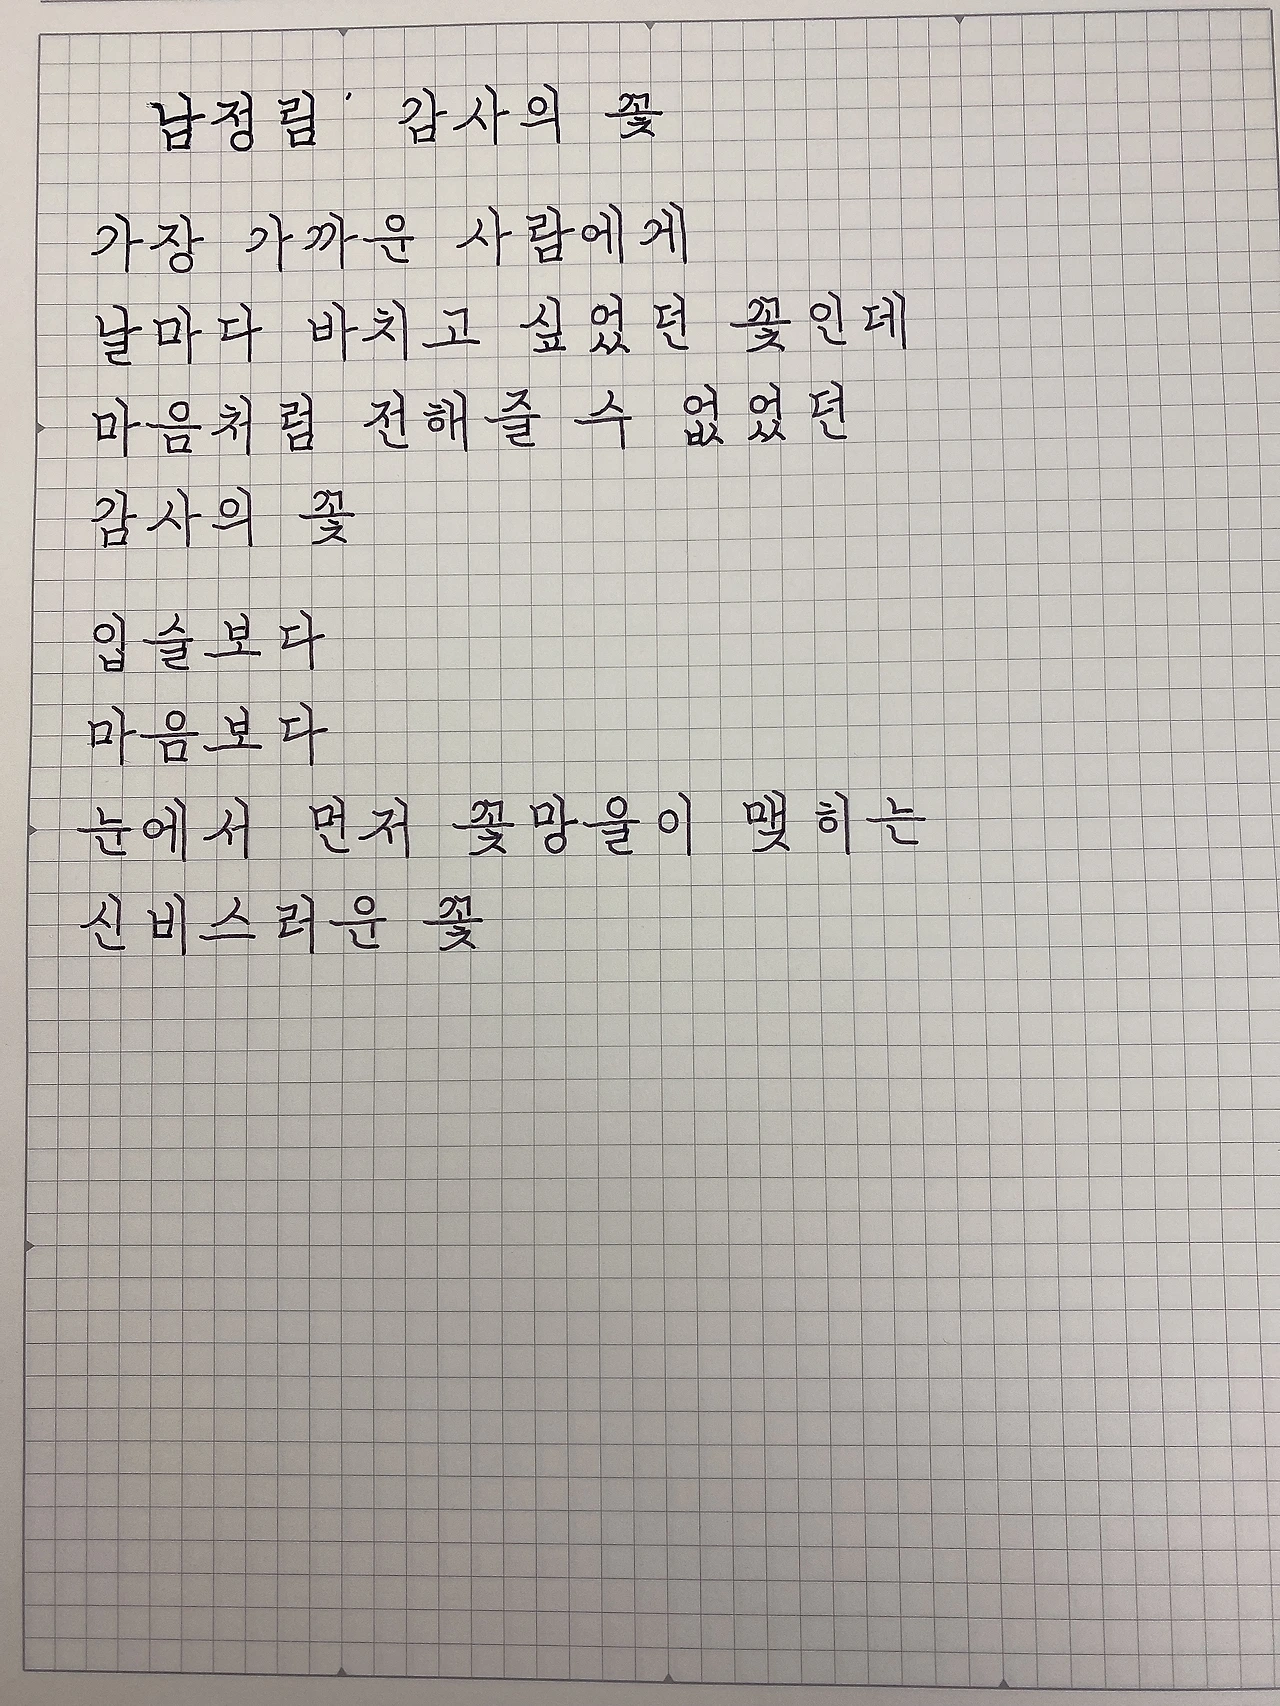 남정림' 감사의 꽃
가장 가까운 사람에게
날마다 바치고 싶었던 꽃인데
마음처럼 전해줄 수 없었던
감사의 꽃
입술보다
마음보다
눈에서 먼저 꽃망울이 맺히는
신비스러운 꽃